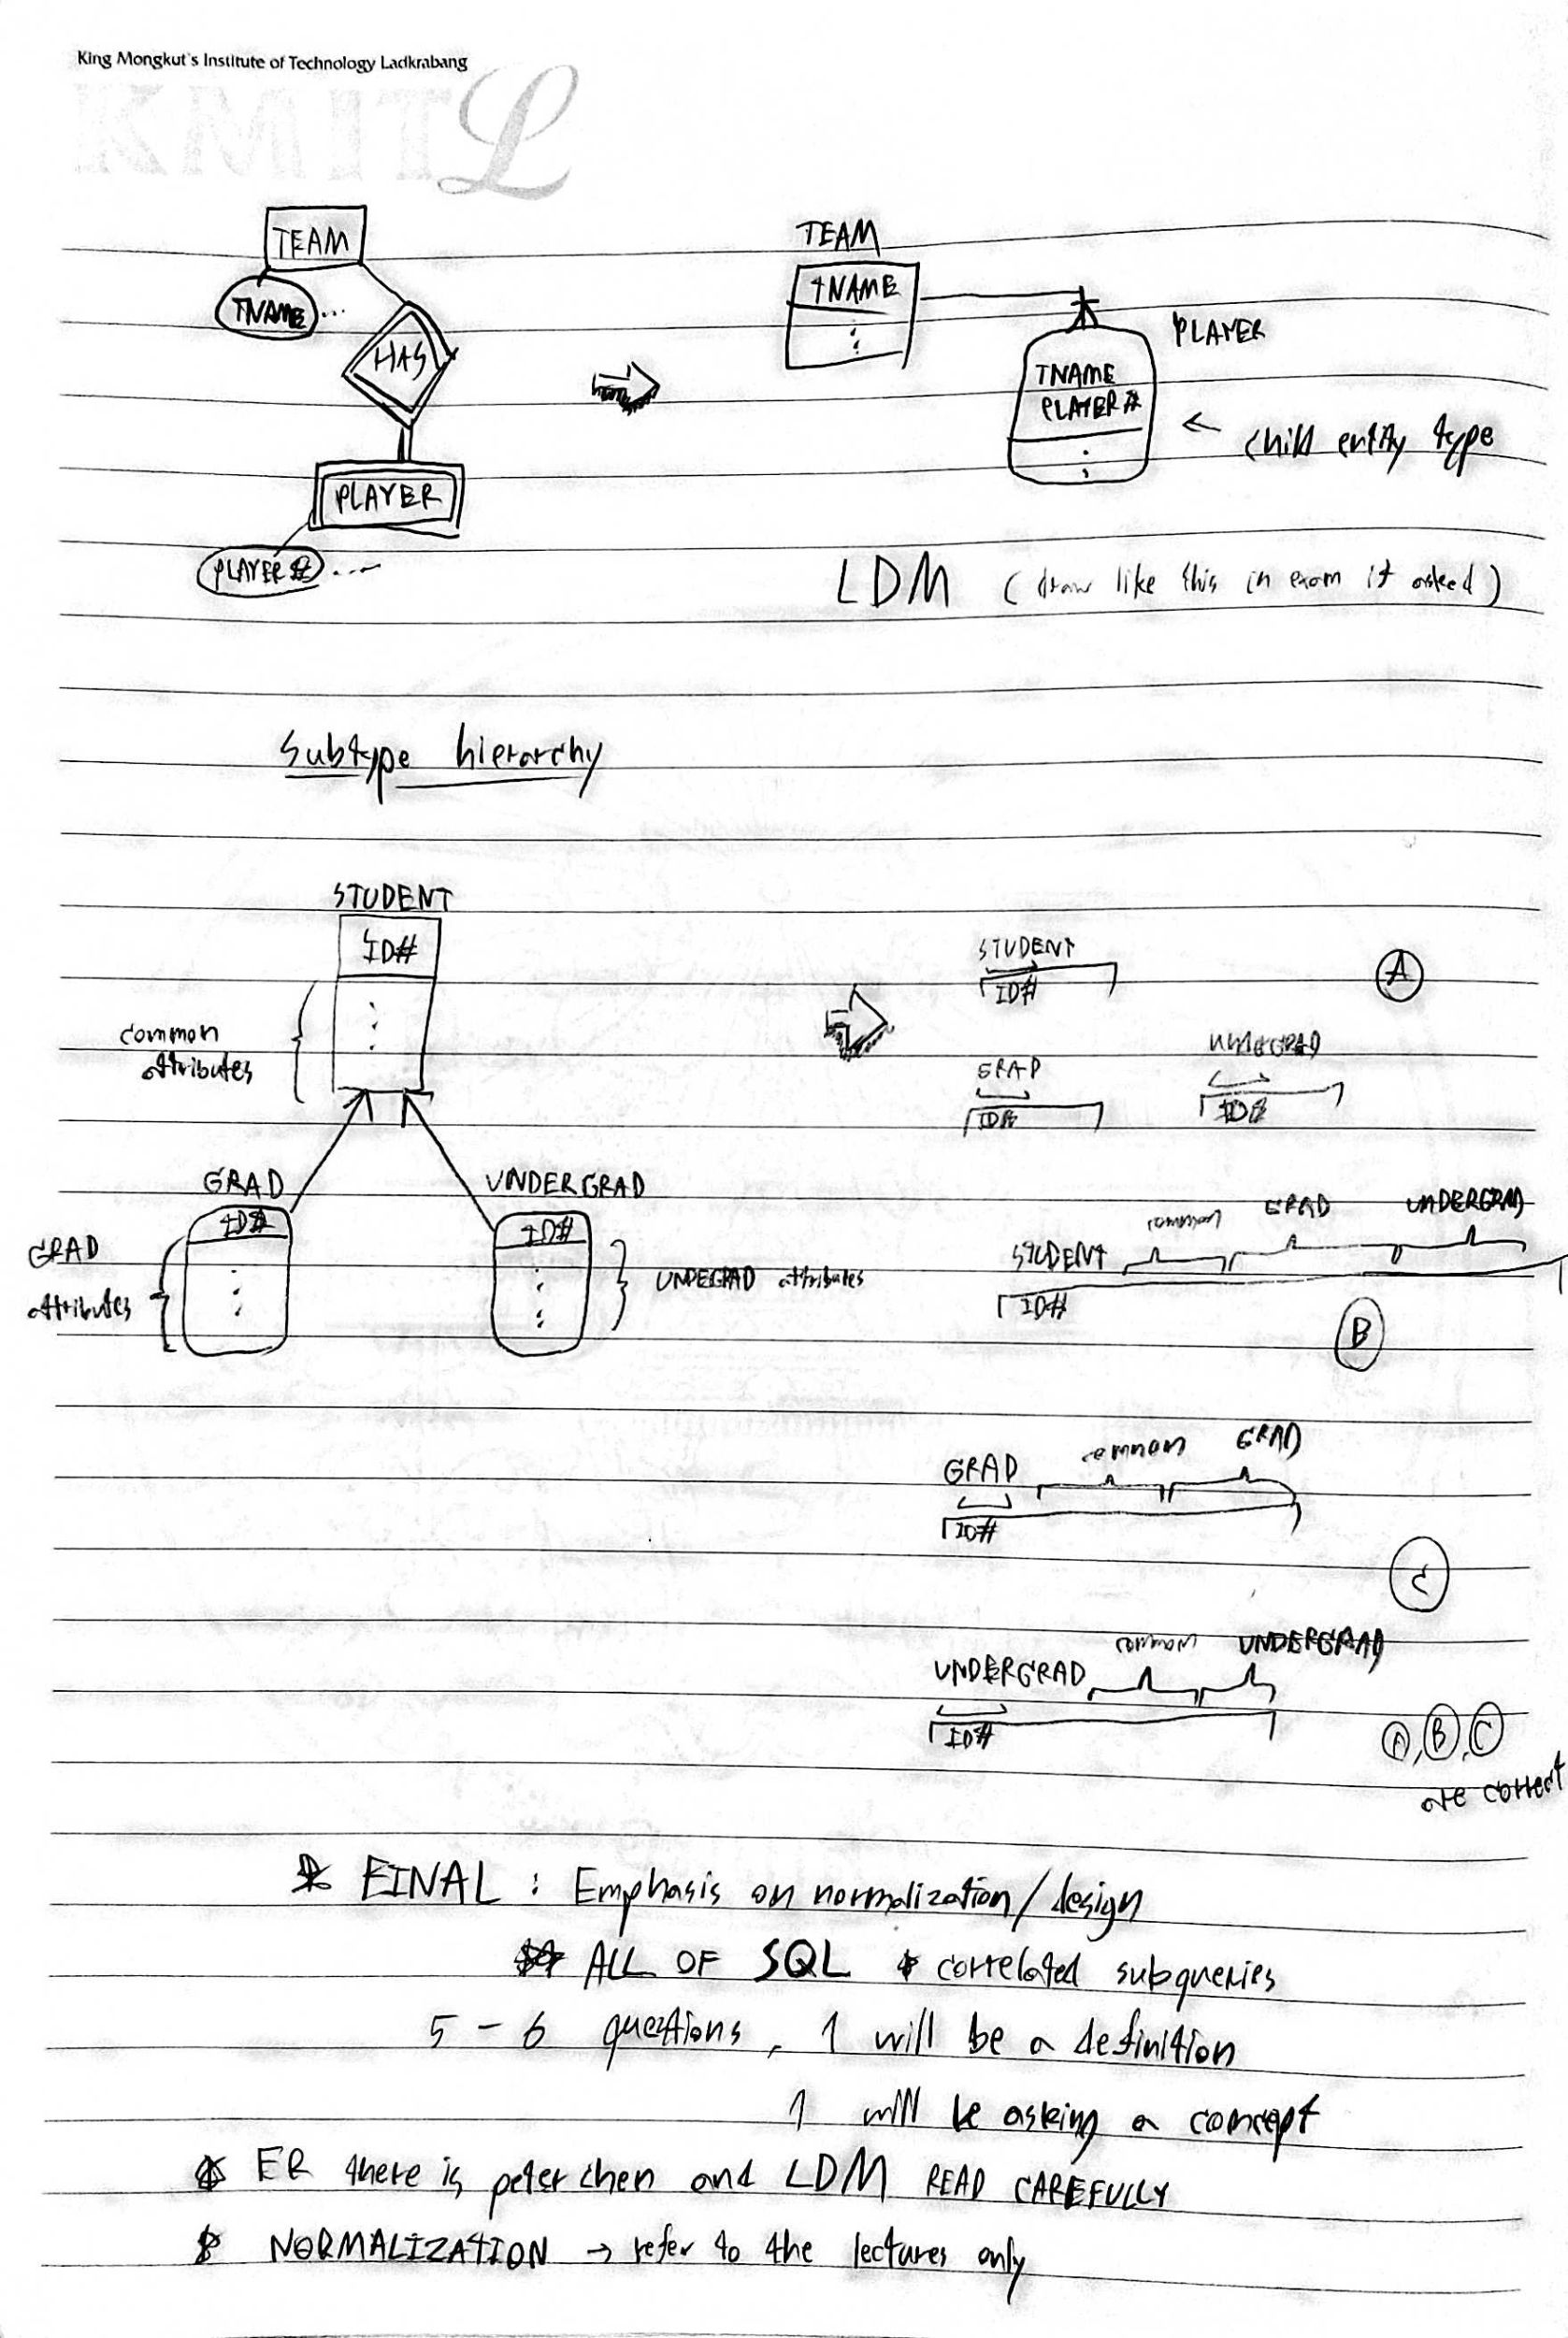 King Mongkut's Institute of Technology Ladkrabang
KMITL
TEAM
TNAME ...
HAS
PLAYER
PLAYER# ...
TEAM
TNAME
PLAYER
TNAME
PLAYER#
← child entity type
LDM (draw like this in exam if asked)
Subtype hierarchy
STUDENT
ID#
common
attributes
GRAD
ID#
GRAD
attributes
UNDERGRAD
ID#
UNDEGRAD attributes
STUDENT
ID#
A
GRAD
ID#
UNDERGRAD
ID#
STUDENT common GRAD UNDERGRAD
ID#
B
GRAD common GRAD
ID#
C
UNDERGRAD common UNDERGRAD
ID#
A, B, C
are correct
* FINAL : Emphasis on normalization/design
ALL OF SQL * correlated subqueries
5 - 6 questions, 1 will be a definition
1 will be asking a concept
* ER there is peter chen and LDM READ CAREFULLY
* NORMALIZATION → refer to the lectures only